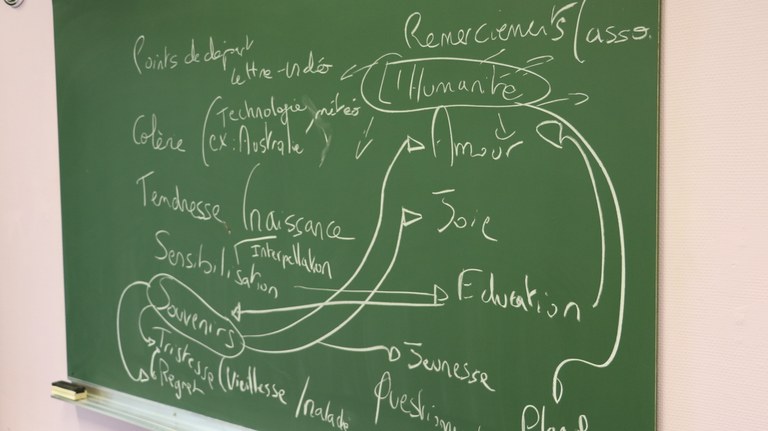 Remerciements (asso.
Points de départ
lettre-vidéo
L'Humanité
Colère (Technologie, météo
ex: Australie)
Amour
Tendresse (naissance
Joie
Sensibilisation
Interpellation
Education
Souvenirs
Tristesse (Vieillesse /malade
Regret
Jeunesse